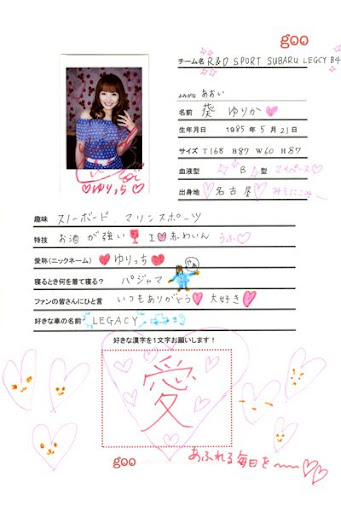 goo
チーム名 R&D SPORT SUBARU LEGCY B4
ふりがな あおい
名前 葵 ゆりか
生年月日 1985年 5月 21日
サイズ T168 H87 W60 H87
血液型 B 型 マイペース♡
出身地 名古屋
♡ゆりっち♡
趣味 スノーボード、マリンスポーツ
特技 お酒が強い I♡赤わいん うふ♡
愛称(ニックネーム) ♡ゆりっち♡
寝るとき何を着て寝る? パジャマ
ファンの皆さんにひと言 いつもありがとう♡大好き♡
好きな車の名前 LEGACY
好きな漢字を1文字お願いします!
愛
goo
あふれる毎日を〜〜♡♡